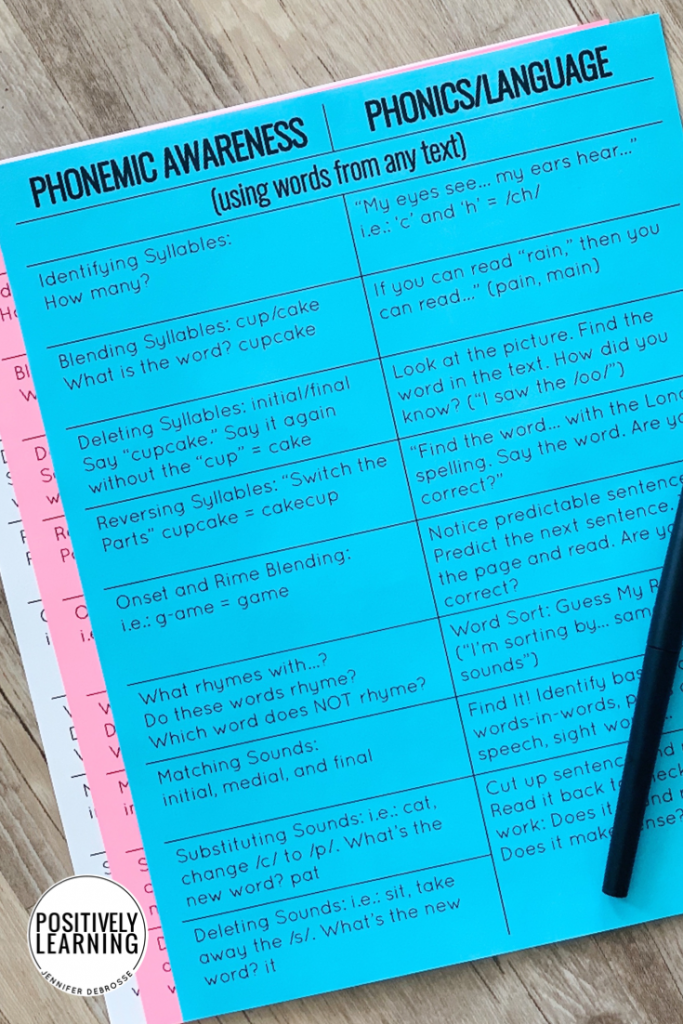 PHONEMIC AWARENESS
PHONICS/LANGUAGE
(using words from any text)
Identifying Syllables:
How many?
Blending Syllables: cup/cake
What is the word? cupcake
Deleting Syllables: initial/final
Say "cupcake." Say it again
without the "cup" = cake
Reversing Syllables: "Switch the
Parts" cupcake = cakecup
Onset and Rime Blending:
i.e.: g-ame = game
What rhymes with...?
Do these words rhyme?
Which word does NOT rhyme?
Matching Sounds:
initial, medial, and final
Substituting Sounds: i.e.: cat,
change /c/ to /p/. What's the
new word? pat
Deleting Sounds: i.e.: sit, take
away the /s/. What's the new
word? it
"My eyes see... my ears hear..."
i.e.: 'c' and 'h' = /ch/
If you can read "rain," then you
can read..." (pain, main)
Look at the picture. Find the
word in the text. How did you
know? ("I saw the /oo/")
"Find the word... with the Lon
spelling. Say the word. Are yo
correct?"
Notice predictable sentenc
Predict the next sentence.
the page and read. Are yo
correct?
Word Sort: Guess My
("I'm sorting by... sam
sounds")
Find It! Identify bas
words-in-words, p
speech, sight wo
Cut up sentenc
Read it back to
work: Does it
Does it make
POSITIVELY
LEARNING
JENNIFER DEBROSSE